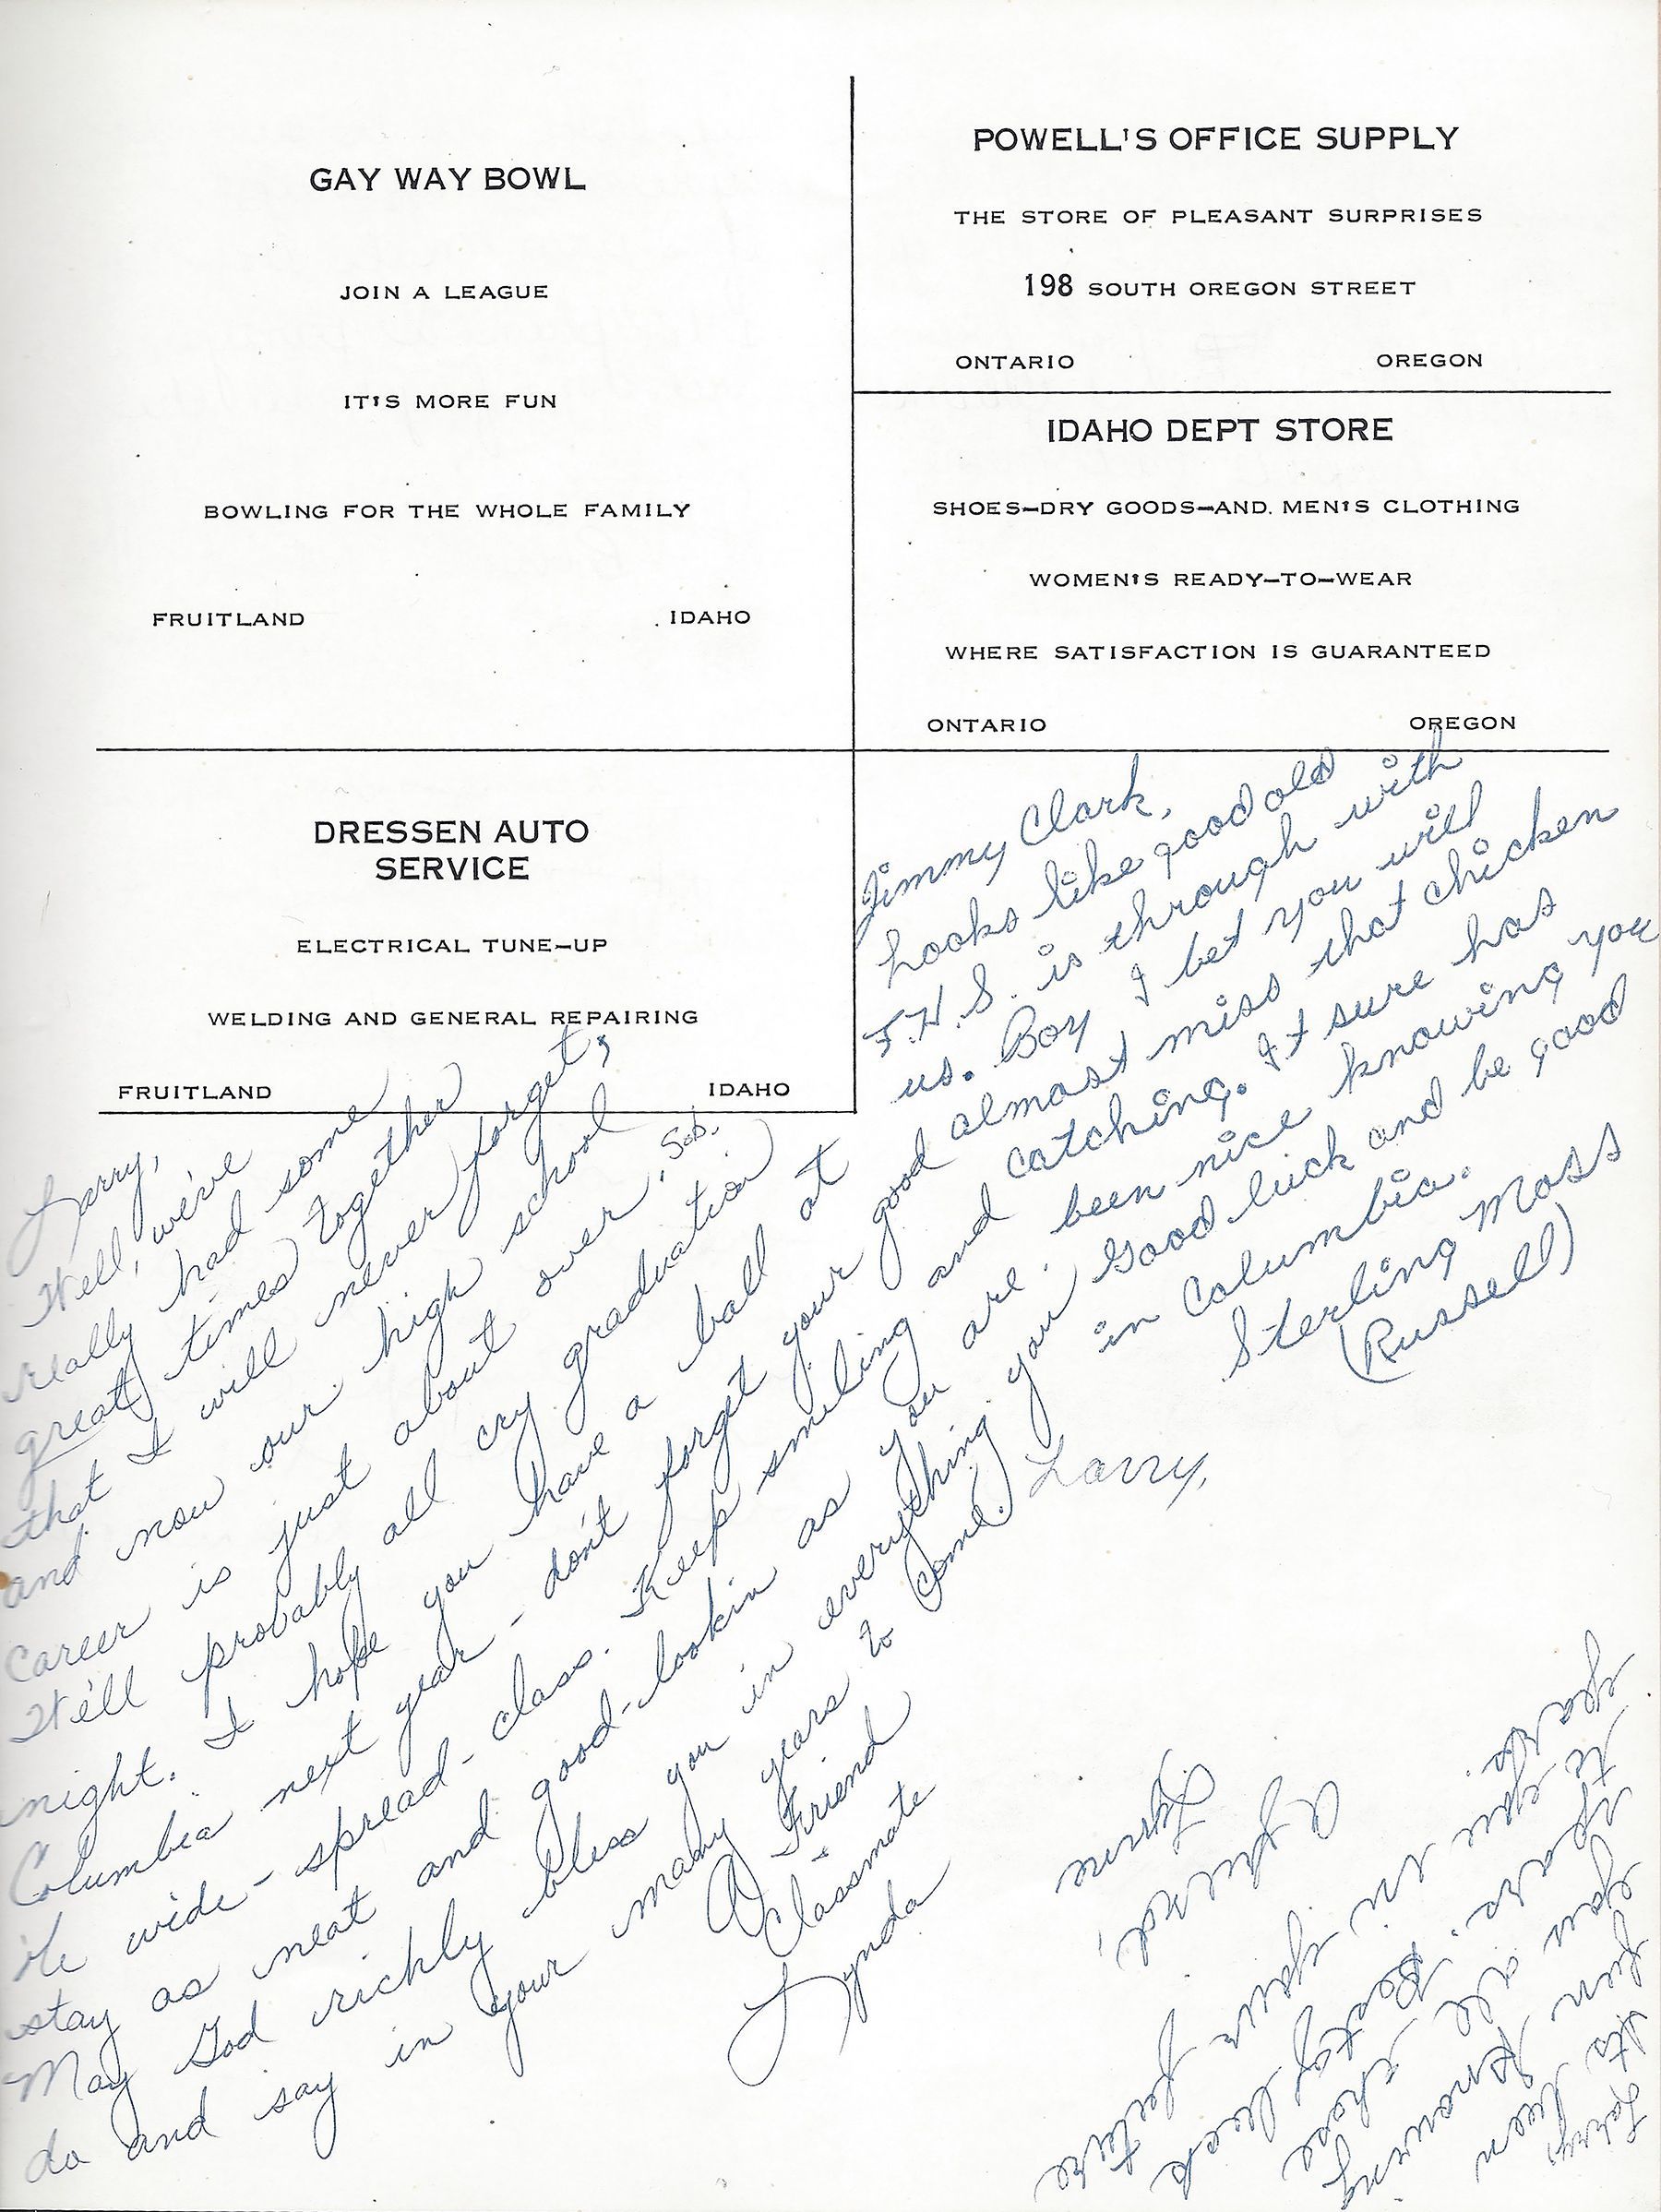 GAY WAY BOWL
JOIN A LEAGUE
IT'S MORE FUN
BOWLING FOR THE WHOLE FAMILY
FRUITLAND IDAHO
POWELL'S OFFICE SUPPLY
THE STORE OF PLEASANT SURPRISES
198 SOUTH OREGON STREET
ONTARIO OREGON
IDAHO DEPT STORE
SHOES-DRY GOODS-AND. MEN'S CLOTHING
WOMEN'S READY-TO-WEAR
WHERE SATISFACTION IS GUARANTEED
ONTARIO OREGON
DRESSEN AUTO
SERVICE
ELECTRICAL TUNE-UP
WELDING AND GENERAL REPAIRING
FRUITLAND IDAHO
Jimmy Clark,
Looks like good old
F.H.S. is through with
us. Boy I bet you will
almost miss that chicken
catching. It sure has
been nice knowing you
Good luck and be good
in Columbia.
Sterling Moss
(Russell)
Larry,
Well, we've
really had some
great times together
that I will never forget,
and now our high school
career is just about over. Sob.
We'll probably all cry graduation
night. I hope you have a ball at
Columbia next year - don't forget your good
ole wide-spread-class. Keep smiling and
stay as neat and good-lookin as you are.
May God richly bless you in everything you
do and say in your many years to come.
A Friend
&
Classmate
Lynda
Larry,
Larry,
Its been
fun knowing
you all these
years. Best of luck
to you in your future
years.
A friend,
Lynne